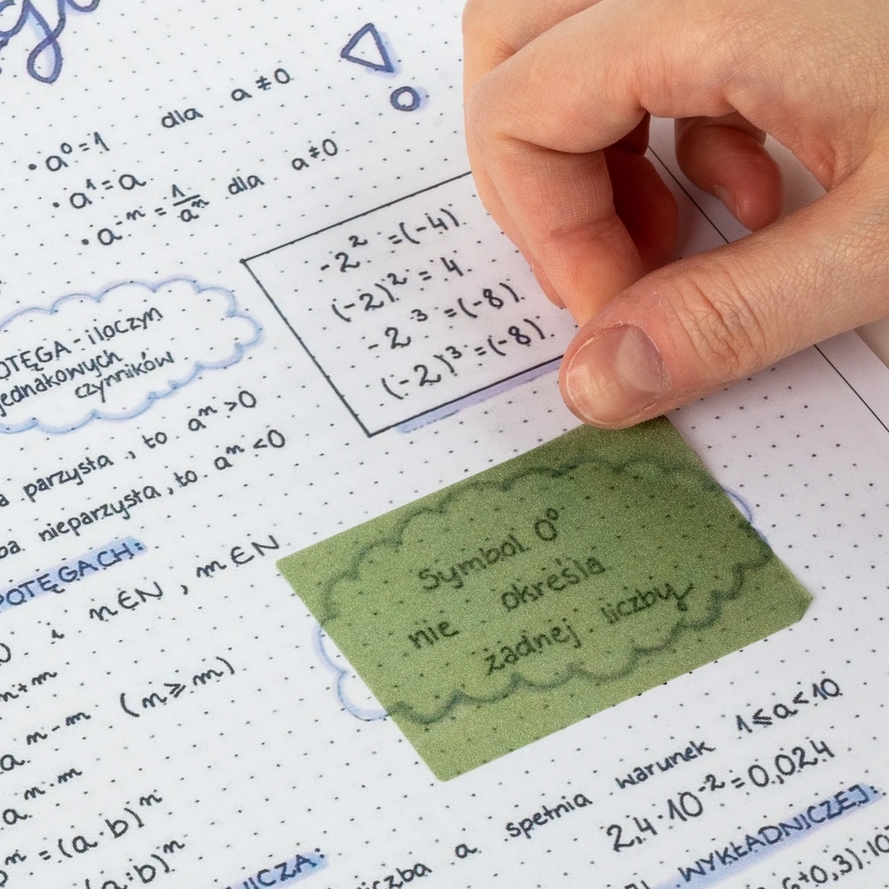 • a⁰=1 dla a≠0
• a¹=a
• a⁻ⁿ = 1/aⁿ dla a≠0
-2² =(-4)
(-2)² = 4
-2³ =(-8)
(-2)³=(-8)
- iloczyn
jednakowych
czynników
parzysta, to aⁿ>0
nieparzysta, to aⁿ<0
POTĘGACH:
i n∈N, m∈N
Symbol 0⁰
nie określa
żadnej liczby
(m⩾n)
=(a·b)ⁿ
(a:b)ⁿ
a spełnia warunek 1⩽a<10
2,4·10⁻²=0,024
WYKŁADNICZEJ: